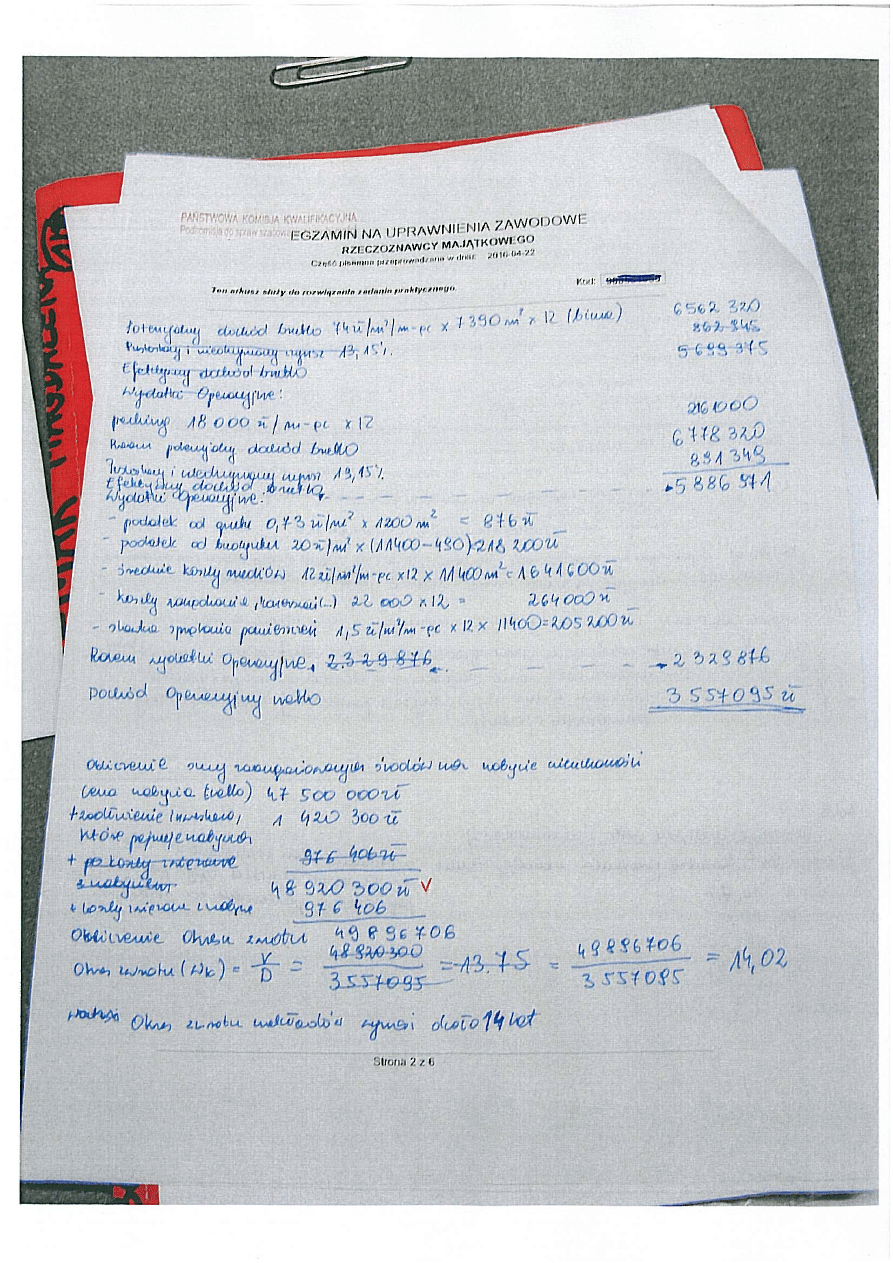 PAŃSTWOWA KOMISJA KWALIFIKACYJNA
Podkomisja do spraw szacowa
EGZAMIN NA UPRAWNIENIA ZAWODOWE
RZECZOZNAWCY MAJĄTKOWEGO
Część pisemna przeprowadzana w dniu: 2016-04-22
Ten arkusz służy do rozwiązania zadania praktycznego.
Kod:
Potencjalny dochód brutto 74 zł/m²/m-pc x 7390 m² x 12 (biura) 6562 320
Pustostany i nieściągnięty czynsz 13,15%. 862 945
Efektywny dochód brutto 5 699 375
Wydatki Operacyjne:
parking 18 000 zł/m-pc x 12 216 000
Razem potencjalny dochód brutto 6 778 320
Pustostany i nieściągnięty czynsz 13,15% 891 349
Efektywny dochód brutto 5 886 971
Wydatki Operacyjne:
- podatek od gruntu 0,73 zł/m² x 1200 m² = 876 zł
- podatek od budynku 20 zł/m² x (11400-490) 218 200 zł
- średnie koszty mediów 12 zł/m²/m-pc x 12 x 11400 m² = 1 641 600 zł
- koszty 22 000 x 12 = 264 000 zł
- sprzątania pomieszczeń 1,5 zł/m²/m-pc x 12 x 11400 = 205 200 zł
Razem wydatki Operacyjne 2 329 876 2 329 876
Dochód Operacyjny netto 3 557 095 zł
Obliczenie sumy zaangażowanych środków na nabycie nieruchomości
Cena nabycia (netto) 47 500 000 zł
+ zadłużenie 1 420 300 zł
które nabywca
+ koszty 976 406 zł
z nabyciem 48 920 300 zł V
+ koszty 976 406
Obliczenie Okresu zwrotu 49 896 706
Okres zwrotu (Wk) = V/D = 48 920 300 / 3 557 095 = 13.75 = 49 896 706 / 3 557 095 = 14,02
Okres zwrotu nakładów wynosi około 14 lat
Strona 2 z 6